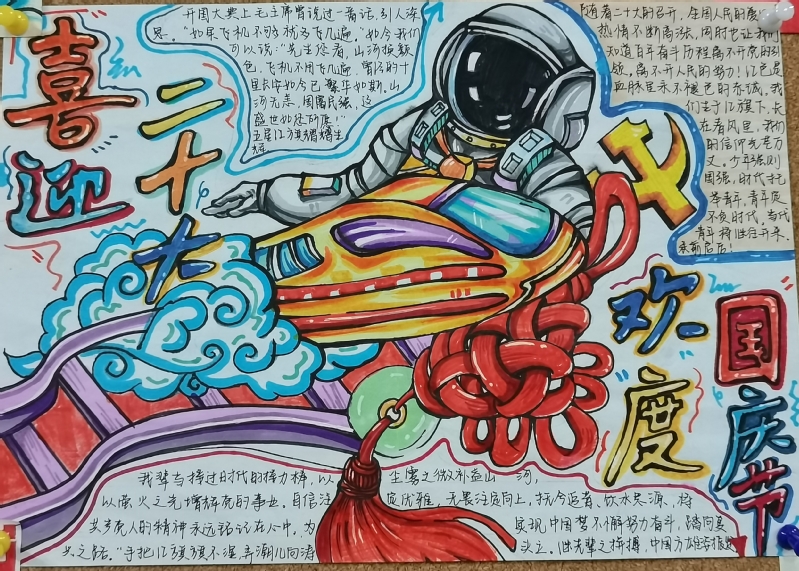 喜迎
二十大
开国大典上毛主席曾说过一番话,引人深
思。"如果飞机不够就多飞几遍。"如今我们
可以说:"先生您看,山河换颜
色,飞机不用飞几遍,曾经的十
里长安如今已繁华如斯,山
河无恙,国富民强,这
盛世如您所愿!"
五星红旗
随着二十大的召开,全国人民的爱
热情不断高涨,同时也让我
知道百年奋斗历程离不开党的引
领,离不开人民的努力!红色是
血脉里永不褪色的赤诚。我
们生于红旗下,长
在春风里。我们
的信仰光芒万
丈。少年强则
国强,时代
青年,青年定
不负时代。当代
青年将继往开来,
承前启后!
欢度
国庆节
我辈与接过时代的接力棒,以 尘雾之微补益山 河,
以萤火之光增辉党的事业。自信 优雅,无畏 向上,抚今追昔、饮水思源,将
共产党人的精神永远铭记在心中,为 实现中国梦不懈努力奋斗,踏向复
兴之路。"手把红旗旗不湿,弄潮儿向涛 头立。继先辈之拼搏,中国方雄